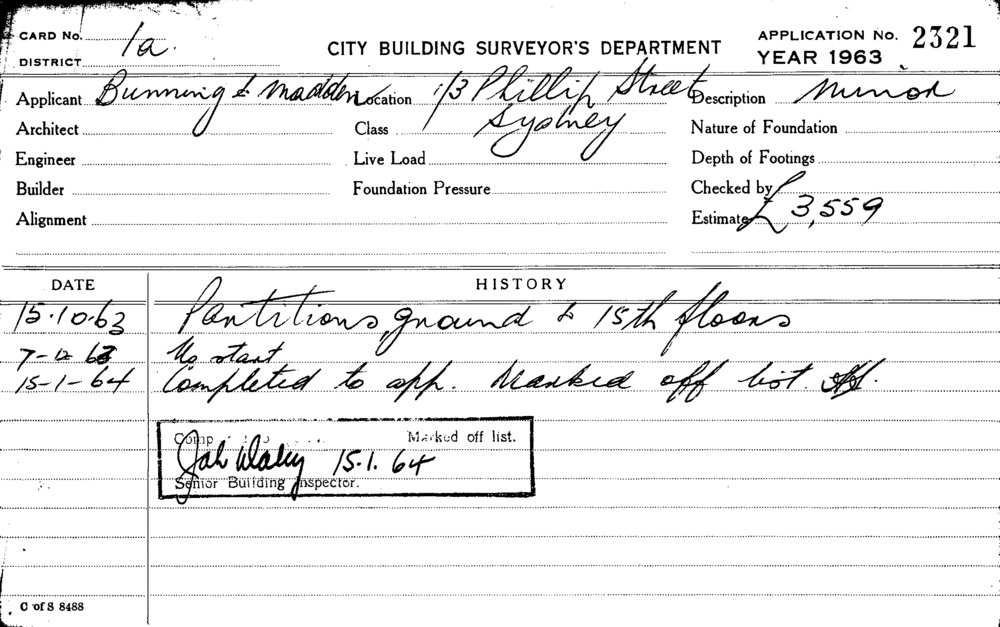 CARD No. 1a.
DISTRICT
CITY BUILDING SURVEYOR'S DEPARTMENT
APPLICATION No. 2321
YEAR 1963
Applicant Bunning & Madden Location 1/3 Phillip Street Description Minor
Sydney
Architect Class Nature of Foundation
Engineer Live Load Depth of Footings
Builder Foundation Pressure Checked by
Alignment Estimate £3,559
DATE HISTORY
15.10.63 Partitions, ground & 15th floors
7-12 63 No start
15-1-64 Completed to app. Marked off list.
Comp Marked off list.
15.1.64
Senior Building Inspector.
C of S 8488